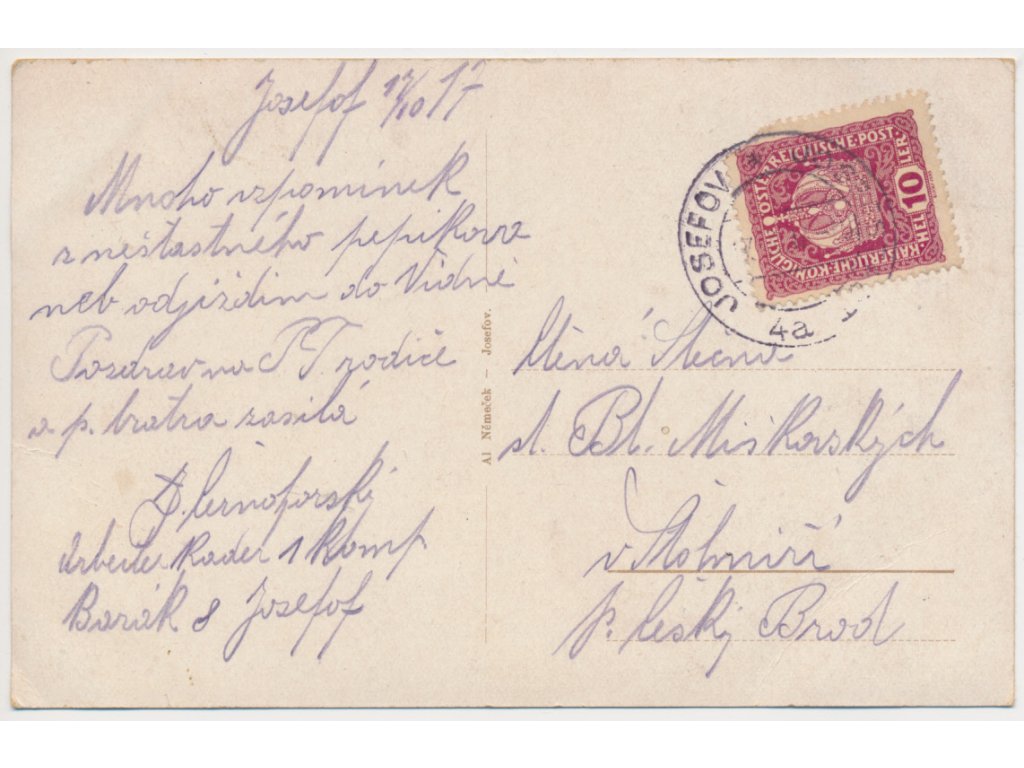 Josefof 17/10 17
Mnoho vzpomínek
z nešťastného pepikova
neb odjíždím do Vídně
Pozdrav na P.T. rodiče
a p. bratra zasílá
Černohorský
Arbeiter Kader 1 Komp
Barák 8 Josefof
Al Němeček – Josefov.
JOSEFOV
4a
KAISERLICHE KÖNIGLICHE ÖSTERREICHISCHE POST
10 HELLER
Ctěná Slečna
sl. Bl. Miškovských
v Štolmíři
p. Český Brod